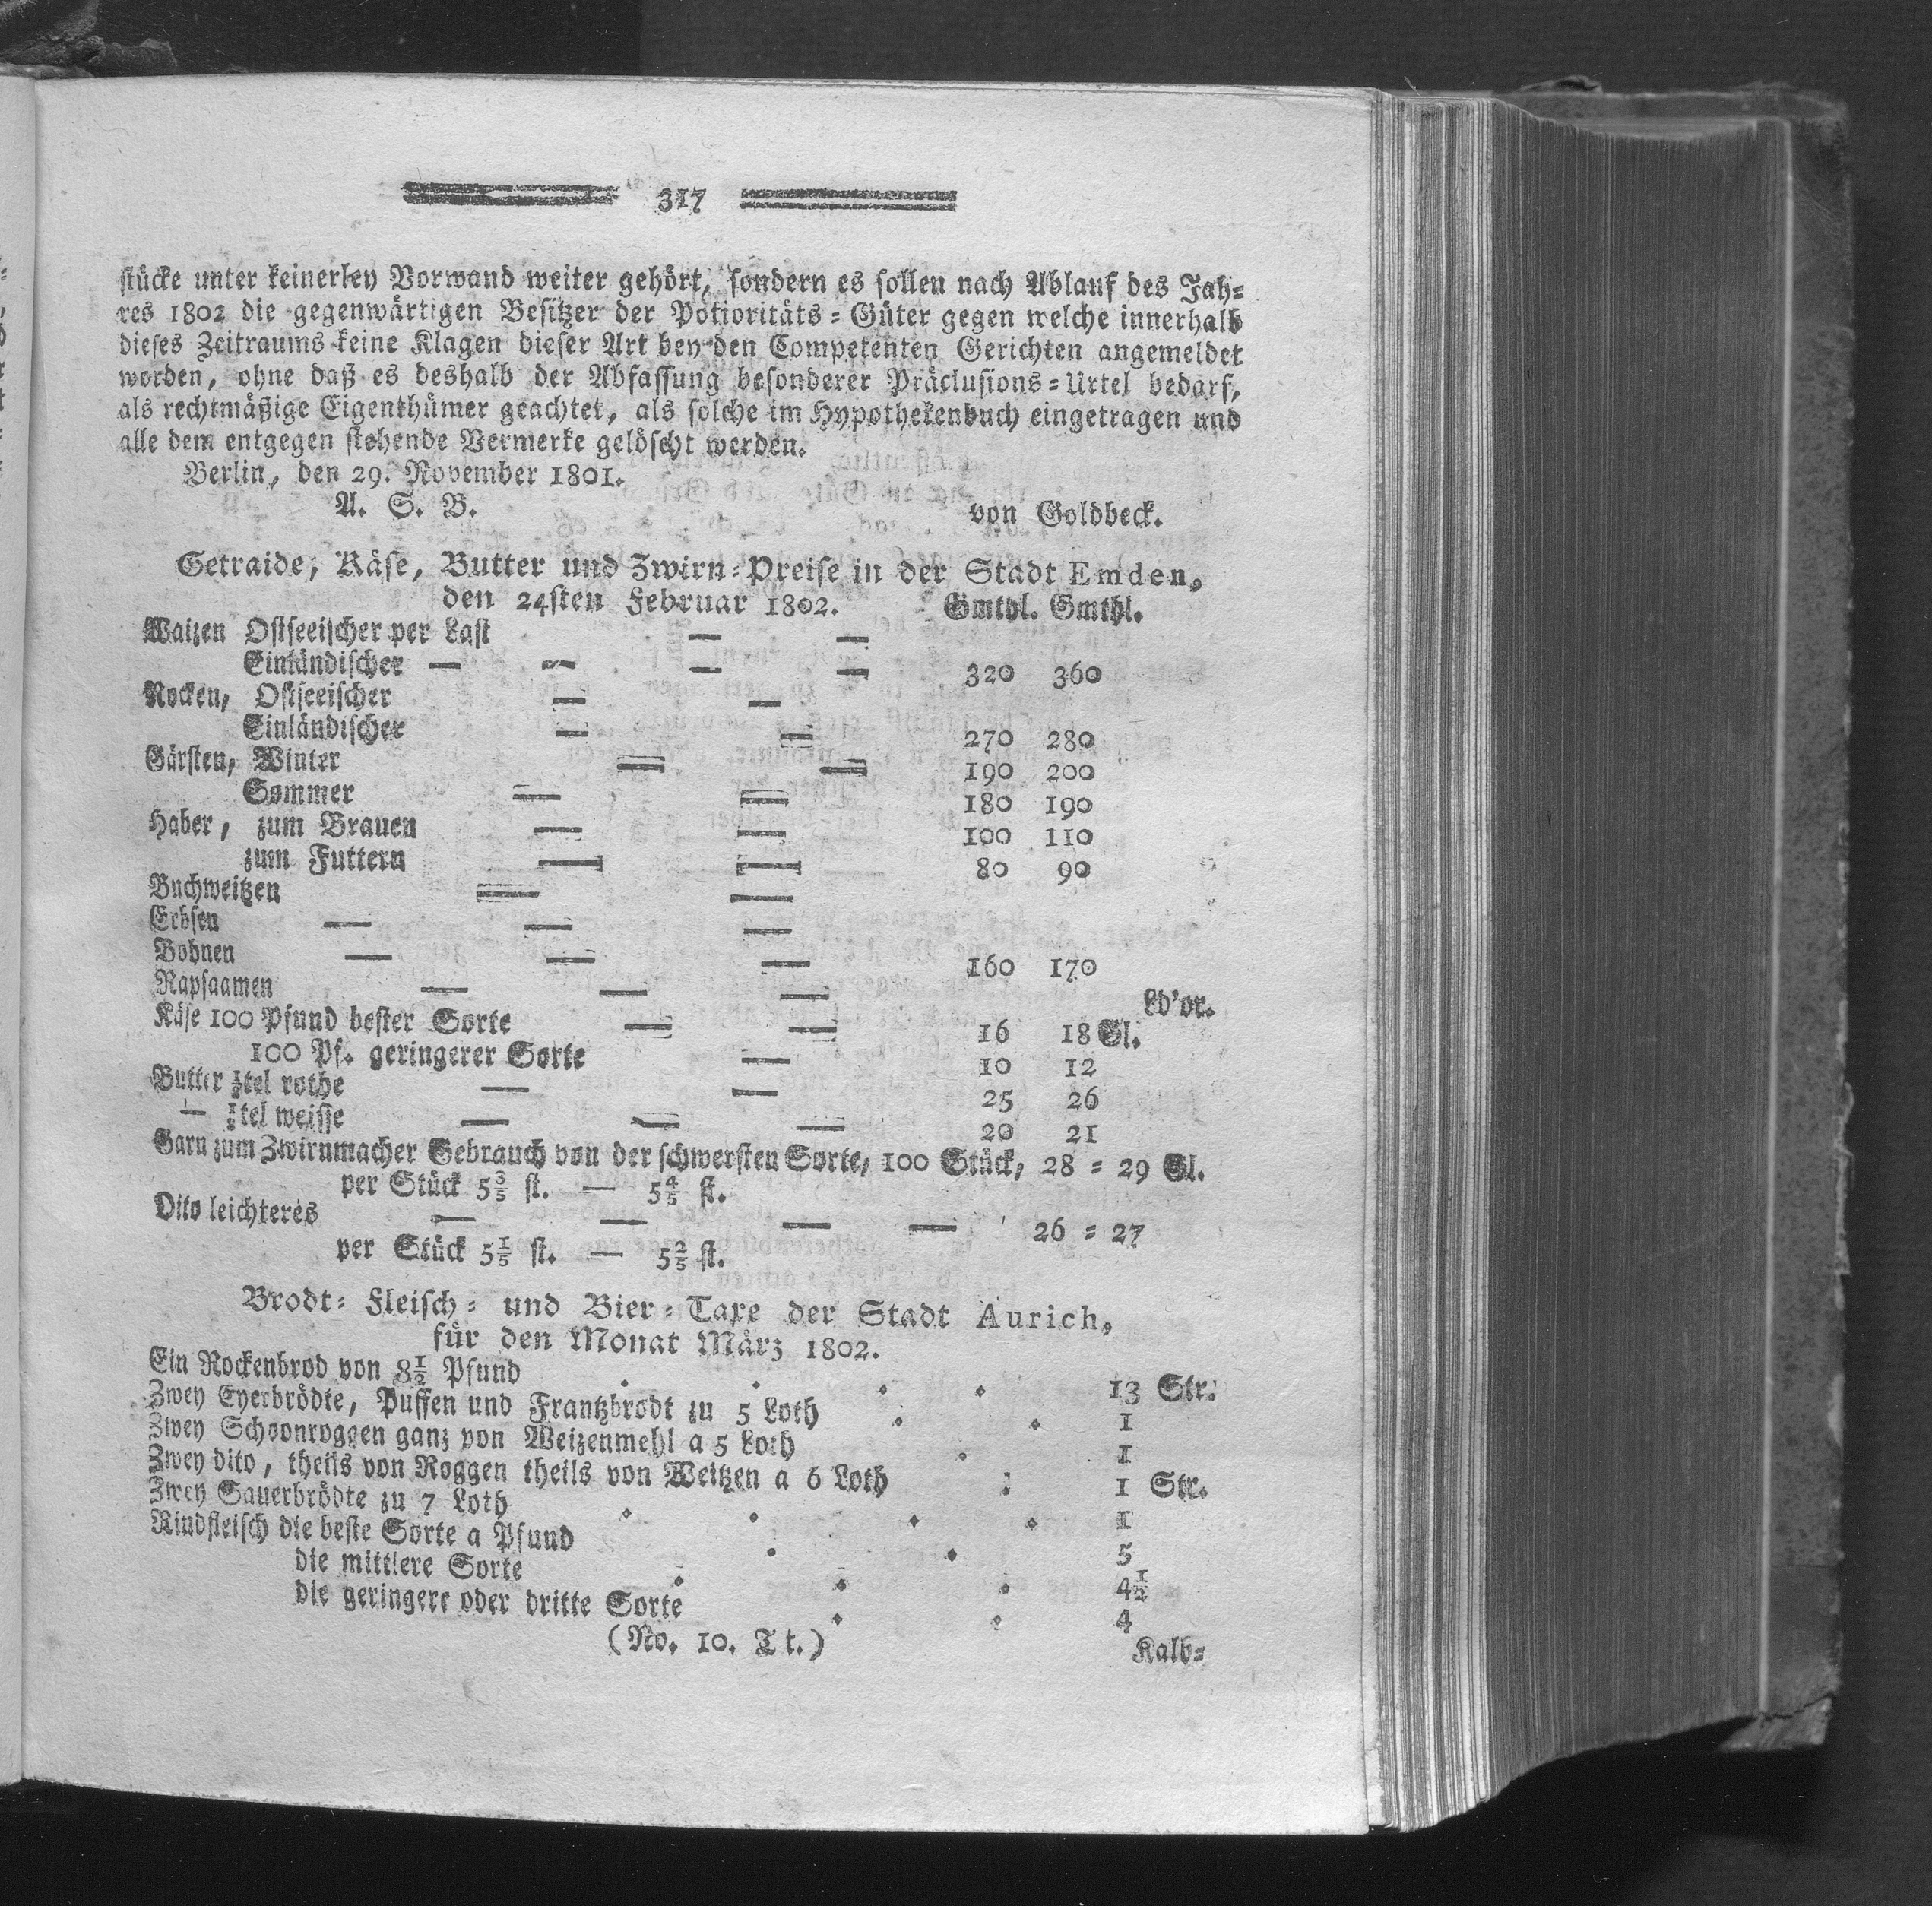 317
stücke unter keinerley Vorwand weiter gehört, sondern es sollen nach Ablauf des Jah=
res 1802 die gegenwärtigen Besitzer der Potioritäts=Güter gegen welche innerhalb
dieses Zeitraums keine Klagen dieser Art bey den Competenten Gerichten angemeldet
worden, ohne daß es deshalb der Abfassung besonderer Präclusions=Urtel bedarf,
als rechtmäßige Eigenthümer geachtet, als solche im Hypothekenbuch eingetragen und
alle dem entgegen stehende Vermerke gelöscht werden.
Berlin, den 29. November 1801.
A. S. B. von Goldbeck.
Getraide, Käse, Butter und Zwirn=Preise in der Stadt Emden,
den 24sten Februar 1802. Gmthl. Gmthl.
Waizen Ostseeischer per Last — —
Einländischer — — — — 320 360
Rocken, Ostseeischer — —
Einländischer — — 270 280
Gärsten, Winter — — 190 200
Sommer — — 180 190
Haber, zum Brauen — — 100 110
zum Futtern — — 80 90
Buchweitzen — —
Erbsen — — —
Bohnen — — — 160 170
Rapsaamen — — —
Ld'or.
Käse 100 Pfund bester Sorte — — 16 18 Gl.
100 Pf. geringerer Sorte — 10 12
Butter tel rothe — — 25 26
— tel weisse — — — 20 21
Garn zum Zwirnmacher Gebrauch von der schwersten Sorte, 100 Stück, 28 = 29 Gl.
per Stück 5 3/5 st. — 5 4/5 st.
Dito leichteres — — — — 26 = 27
per Stück 5 1/5 st. — 5 2/5 st.
Brodt= Fleisch= und Bier=Taxe der Stadt Aurich,
für den Monat März 1802.
Ein Rockenbrod von 8 1/2 Pfund 13 Str.
Zwey Eyerbrödte, Puffen und Frantzbrodt zu 5 Loth 1
Zwey Schoonroggen ganz von Weizenmehl a 5 Loth 1
Zwey dito, theils von Roggen theils von Weitzen a 6 Loth 1 Str.
Zwey Sauerbrödte zu 7 Loth 1
Rindfleisch die beste Sorte a Pfund 5
die mittlere Sorte 4 1/2
die geringere oder dritte Sorte 4
(No. 10. Tt.) Kalb=